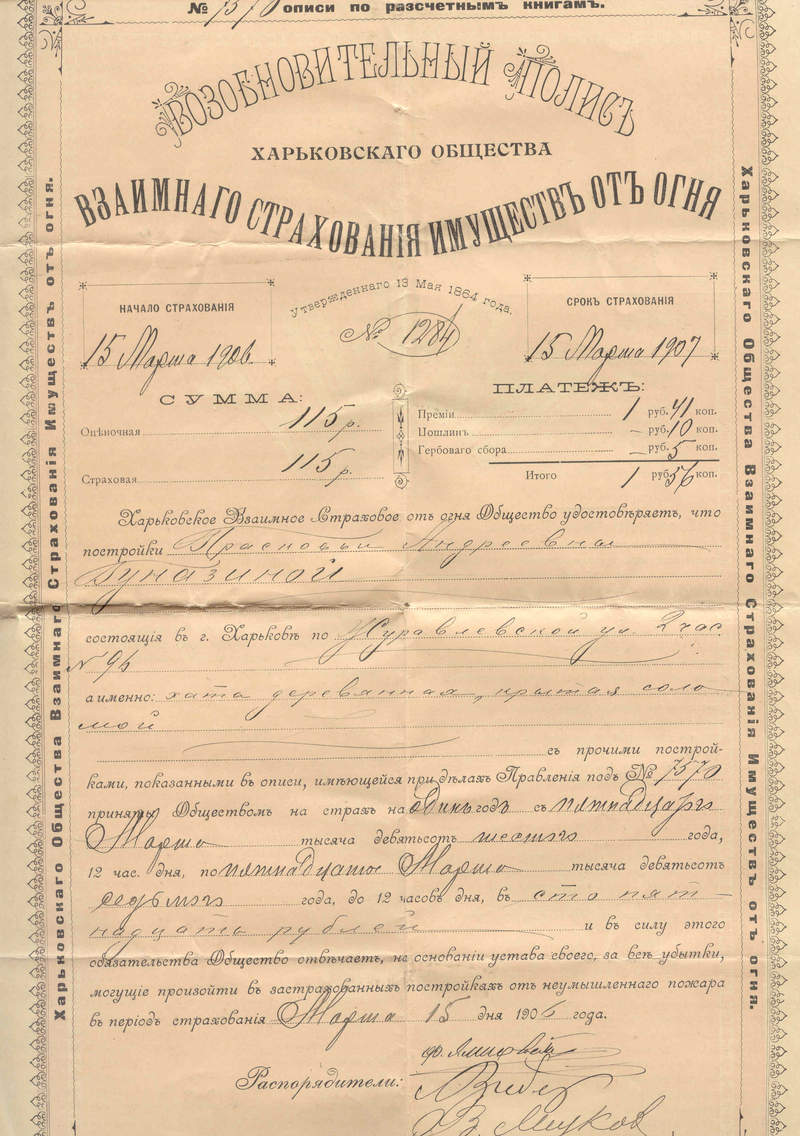 № 7570 описи по разсчетнымъ книгамъ.
ВОЗОБНОВИТЕЛЬНЫЙ ПОЛИСЪ
ХАРЬКОВСКАГО ОБЩЕСТВА
ВЗАИМНАГО СТРАХОВАНІЯ ИМУЩЕСТВЪ ОТЪ ОГНЯ
Утвержденнаго 13 Мая 1864 года.
НАЧАЛО СТРАХОВАНІЯ
15 Марта 1906.
№ 1284
СРОКЪ СТРАХОВАНІЯ
15 Марта 1907
СУММА:
Оцѣночная 115 р.
Страховая 115 р.
ПЛАТЕЖЪ:
Преміи 1 руб. 41 коп.
Пошлинъ — руб. 10 коп.
Гербоваго сбора — руб. 5 коп.
Итого 1 руб. 56 коп.
Харьковское Взаимное Страховое отъ огня Общество удостовѣряетъ, что
постройки Прасковьи Андреевны
состоящія въ г. Харьковѣ по Журавлевской ул. 2 час.
№ 96
а именно: хата деревянная, крытая соло
мой
съ прочими построй-
ками, показанными въ описи, имѣющейся при дѣлахъ Правленія подъ № 7570
приняты Обществомъ на страхъ на одинъ годъ съ пятнадцатаго
Марта тысяча девятьсотъ шестого года,
12 час. дня, по пятнадцатое Марта тысяча девятьсотъ
седьмого года, до 12 часовъ дня, въ сто пят-
надцать рублей и въ силу этого
обязательства Общество отвѣчаетъ, на основаніи устава своего, за всѣ убытки,
могущіе произойти въ застрахованныхъ постройкахъ отъ неумышленнаго пожара
въ періодъ страхованія Марта 15 дня 1906 года.
Распорядители:
Харьковскаго Общества Взаимнаго Страхованія Имуществъ отъ огня.
Харьковскаго Общества Взаимнаго Страхованія Имуществъ отъ огня.